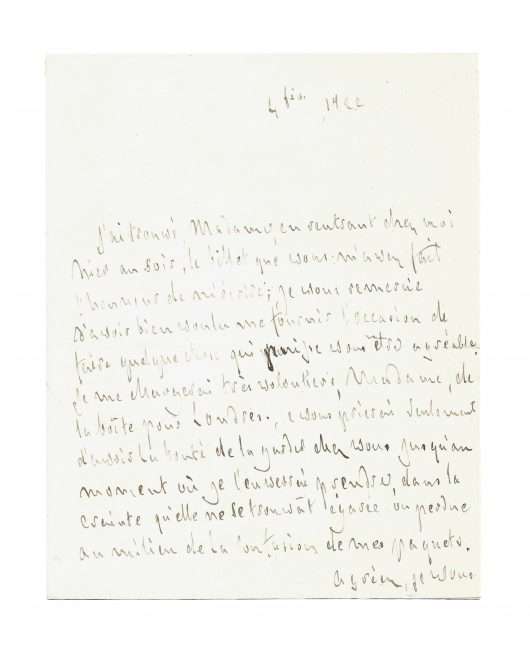 4 fév. 1822
J'ai trouvé, Madame, en rentrant chez moi
hier au soir, le billet que vous m'avez fait
l'honneur de m'écrire; je vous remercie
d'avoir bien voulu me fournir l'occasion de
faire quelque chose qui puisse vous être agréable.
Je me chargerai très volontiers, Madame, de
la boîte pour Londres. Je vous prierai seulement
d'avoir la bonté de la garder chez vous jusqu'au
moment où je l'enverrai prendre, dans la
crainte qu'elle ne se trouvât égarée ou perdue
au milieu de la confusion de mes paquets.
Agréez, je vous